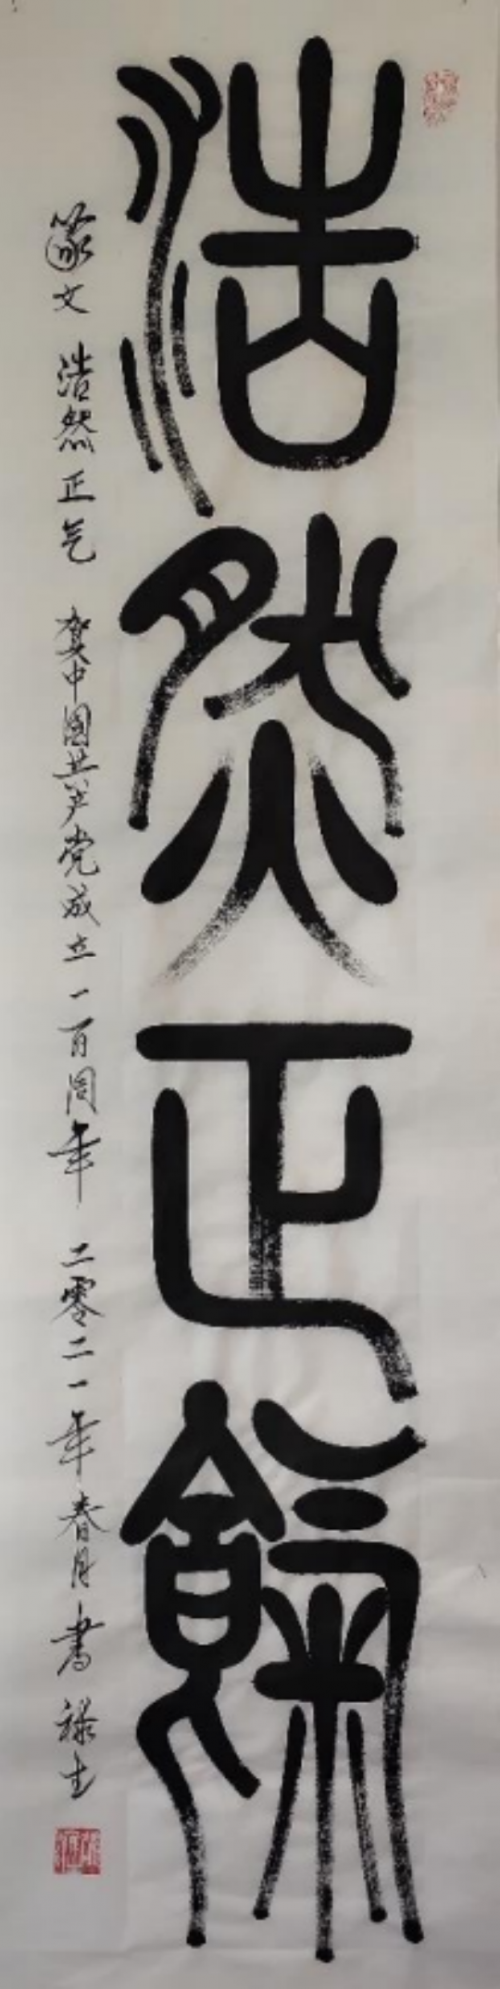 浩然正餼
篆文 浩然正气 贺中國共产党成立一百周年 二零二一年春月書 禄